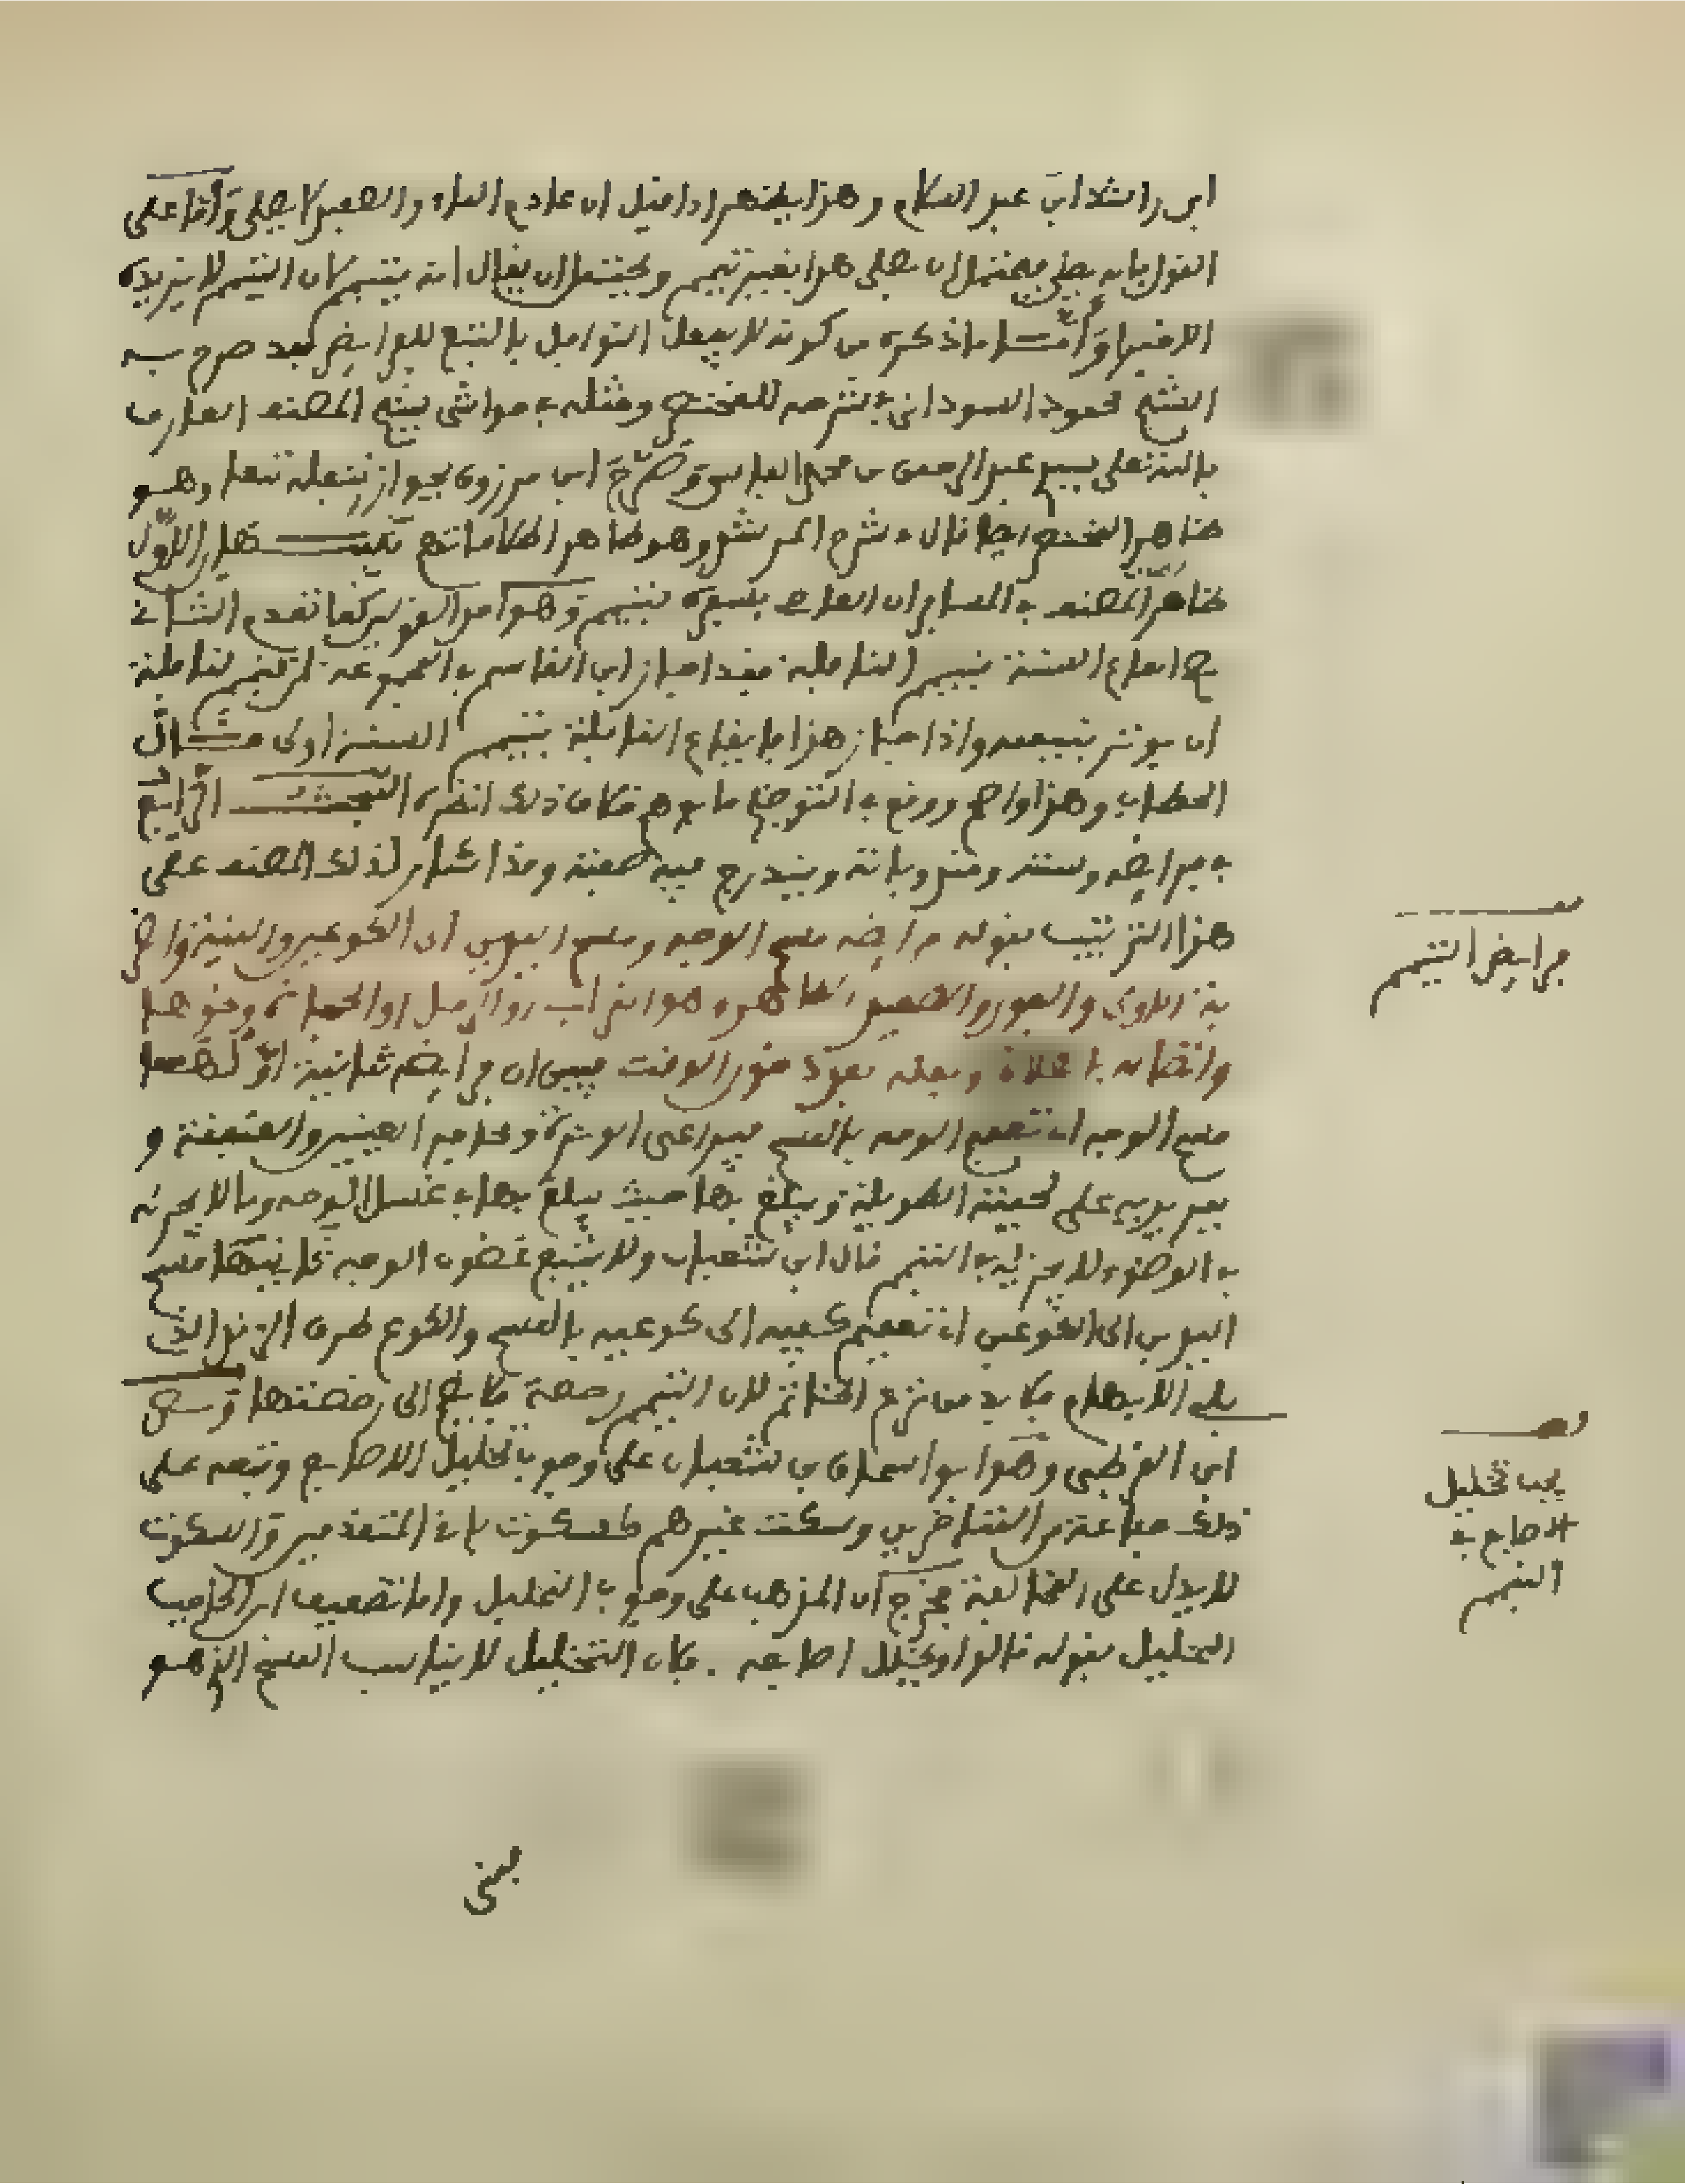 ابن راشد ابن عبد السلام وهذا يظهر اذا قيل ان عادم الماء والصعيد لا يصلي وأما على
القول بأنه يصلي فيحتمل ان يصلي هذا بغير تيمم ويحتمل ان يقال انه يتيمم لان التيمم لا يزيده
الا خيرا وأمـا ما ذكره من كونه لا يفعل النوافل بالتبع للفرايض فقد صرح به
الشيخ محمود السوداني في شرحه للمختصر ومثله في حواشي شيخ المصنف العارف
بالله تعلى سيد عبد الرحمن بن محمد الفاسي وصرّح ابن مرزوق بجواز تبعا وهو
ظاهر المختصر ايضا قال في شرح المرشد وهو ظاهر الأول
ظاهر المصنف المسافر ان الحاضر يتيمم وهو احد القولين كما تقدم الثاني
ايقاع السنة بتيمم النافلة فقد اجاز ابن القاسم في المجموعة لمن تيمم لنافلة
ان يوتر بتيممه واذا جاز هذا فايقاع النافلة بتيمم السنة اولى قـال
الحطاب وهذا واضح ووقع في التوضيح ما يوهم خلاف ذلك انظره المبحث الرابع
في فرايضه وسننه ومندوباته ويندرج فيه صفته وقد اشار لذلك المصنف على
هذا الترتيب بقوله فرايضه مسح الوجه ومسح اليدين الى الكوعين والنية والضر
بة الاولى والفور والصعيد الطاهر وهو التراب والرمل او الحجارة ونحوها
واتصاله بالصلاة وفعله بعد دخول الوقت فبين ان فرايضه ثمانية أولها
مسح الوجه اي تعميم الوجه بالمسح فيراعى الوترة وحجاج العينين والعنفقة و
يمر يديه على لحيته الطويلة ويبلغ بها حيث يبلغ بها في غسل الوجه وما لا يجزئه
في الوضوء لا يجزئه في التيمم قال ابن شعبان ولا يتبع غضون الوجه ثانيها مسح
اليدين الى الكوعين اي تعميم كفيه الى كوعيه بالمسح والكوع طرف الزند الذي
يلي الابهام فلا بد من نزع الخاتم لان التيمم رخصة
ابن القرطبي وهو ابو اسحاق بن شعبان على وجوب تخليل الاصابع وتبعه على
ذلك جماعة من المتاخرين وسكت غيرهم كسكوت باقي المتقدمين والسكوت
لا يدل على المخالفة فخرج ان المذهب على وجوب التخليل واما تضعيف ابن الحاجب
التخليل بقوله قالوا ويخلل اصابعه . فلان التخليل لا يناسب المسح الذي هو
فرايض التيمم
يجب تخليل
الاصابع في
التيمم
مبني